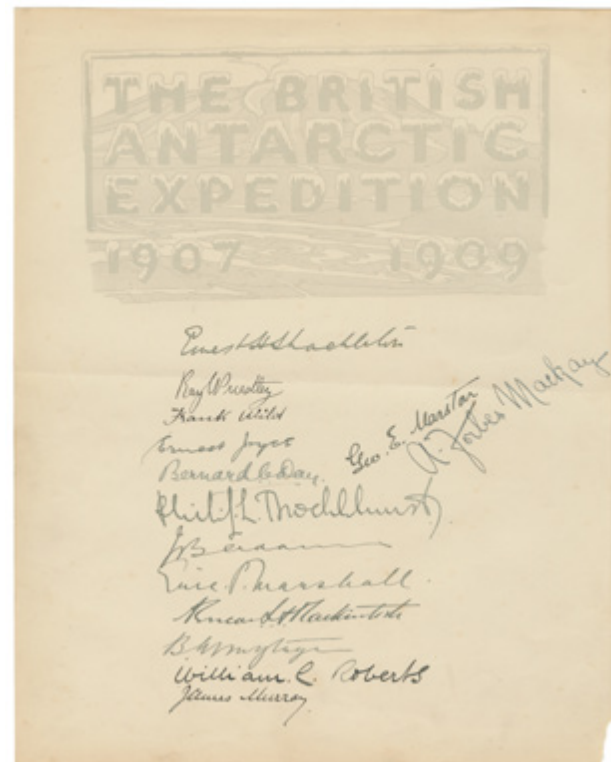 THE BRITISH
ANTARCTIC
EXPEDITION
1907 1909
Ernest H Shackleton
Ray Priestley
Frank Wild
Ernest Joyce
Geo. E. Marston
A. Forbes Mackay
Bernard C Day.
Philip L. Brocklehurst
Eric P. Marshall.
Æneas L A Mackintosh
B Armytage
William. C. Roberts
James Murray